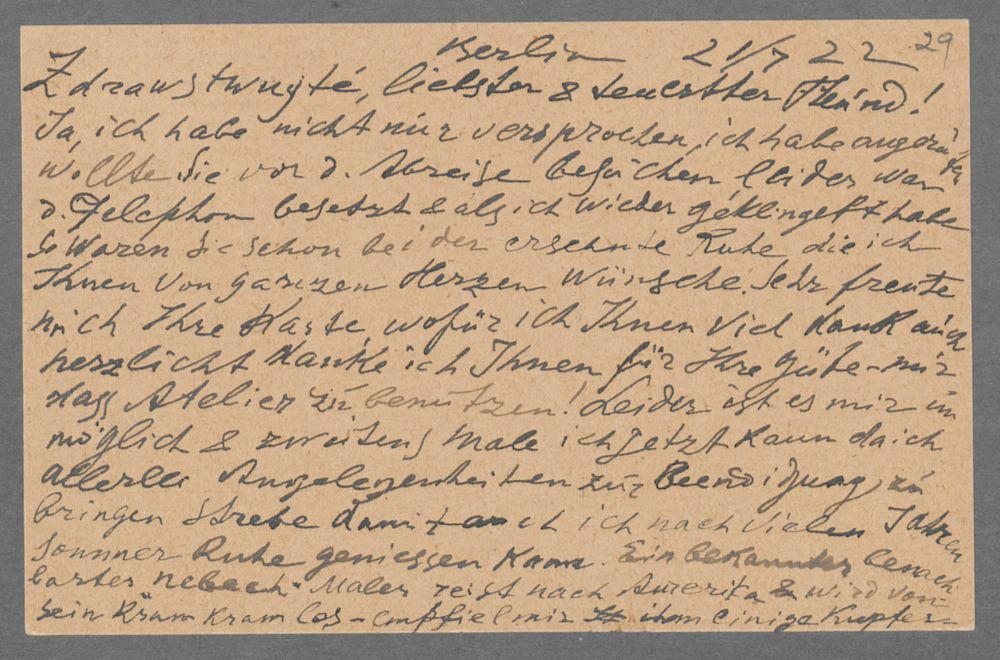 Berlin 21/7 22 29
Zdrawstwuyté, liebster & teuerster Freund!
Ja, ich habe nicht nur versprochen, ich habe angerufen
wollte Sie vor d. Abreise besuchen leider war
d. Telephon besetzt & als ich wieder geklingelt habe
So waren Sie schon bei der ersehnte Ruhe die ich
Ihnen von ganzen Herzen wünsche. Sehr freute
mich Ihre Karte, wofür ich Ihnen viel dank auch
herzlicht danke ich Ihnen für Ihre Güte - mir
dass Atelier zu benutzen! Leider ist es mir un
möglich & zweitens male ich jetzt kaum da ich
allerlei Angelegenheiten zur Beendigung zu
bringen strebe damit auch ich nach vielen Jahren
Sommer Ruhe geniessen kann. Ein bekannter benach-
barter nebech Maler reist nach Amerika & wird von
sein Kram los - empfiel mir ihm einige Kupfer-